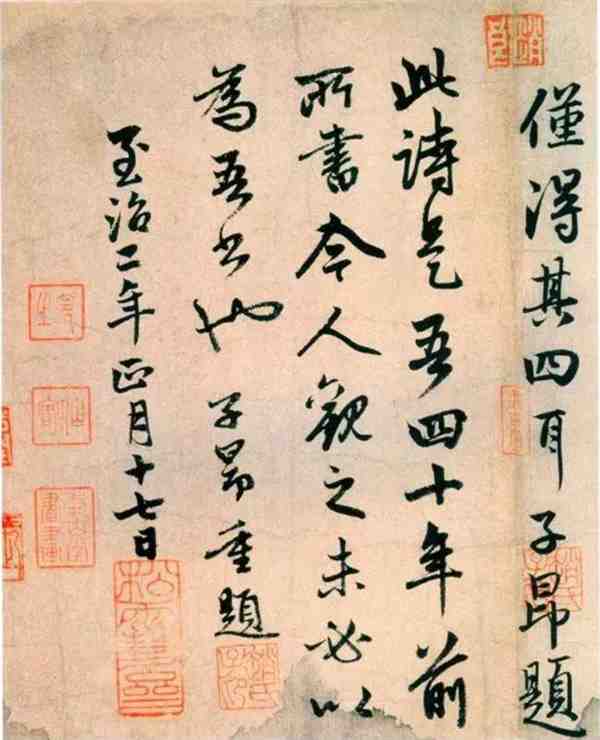 僅得其四耳子昂題
此詩是吾四十年前
所書今人觀之未必以
為吾書也子昂重題
至治二年正月十七日